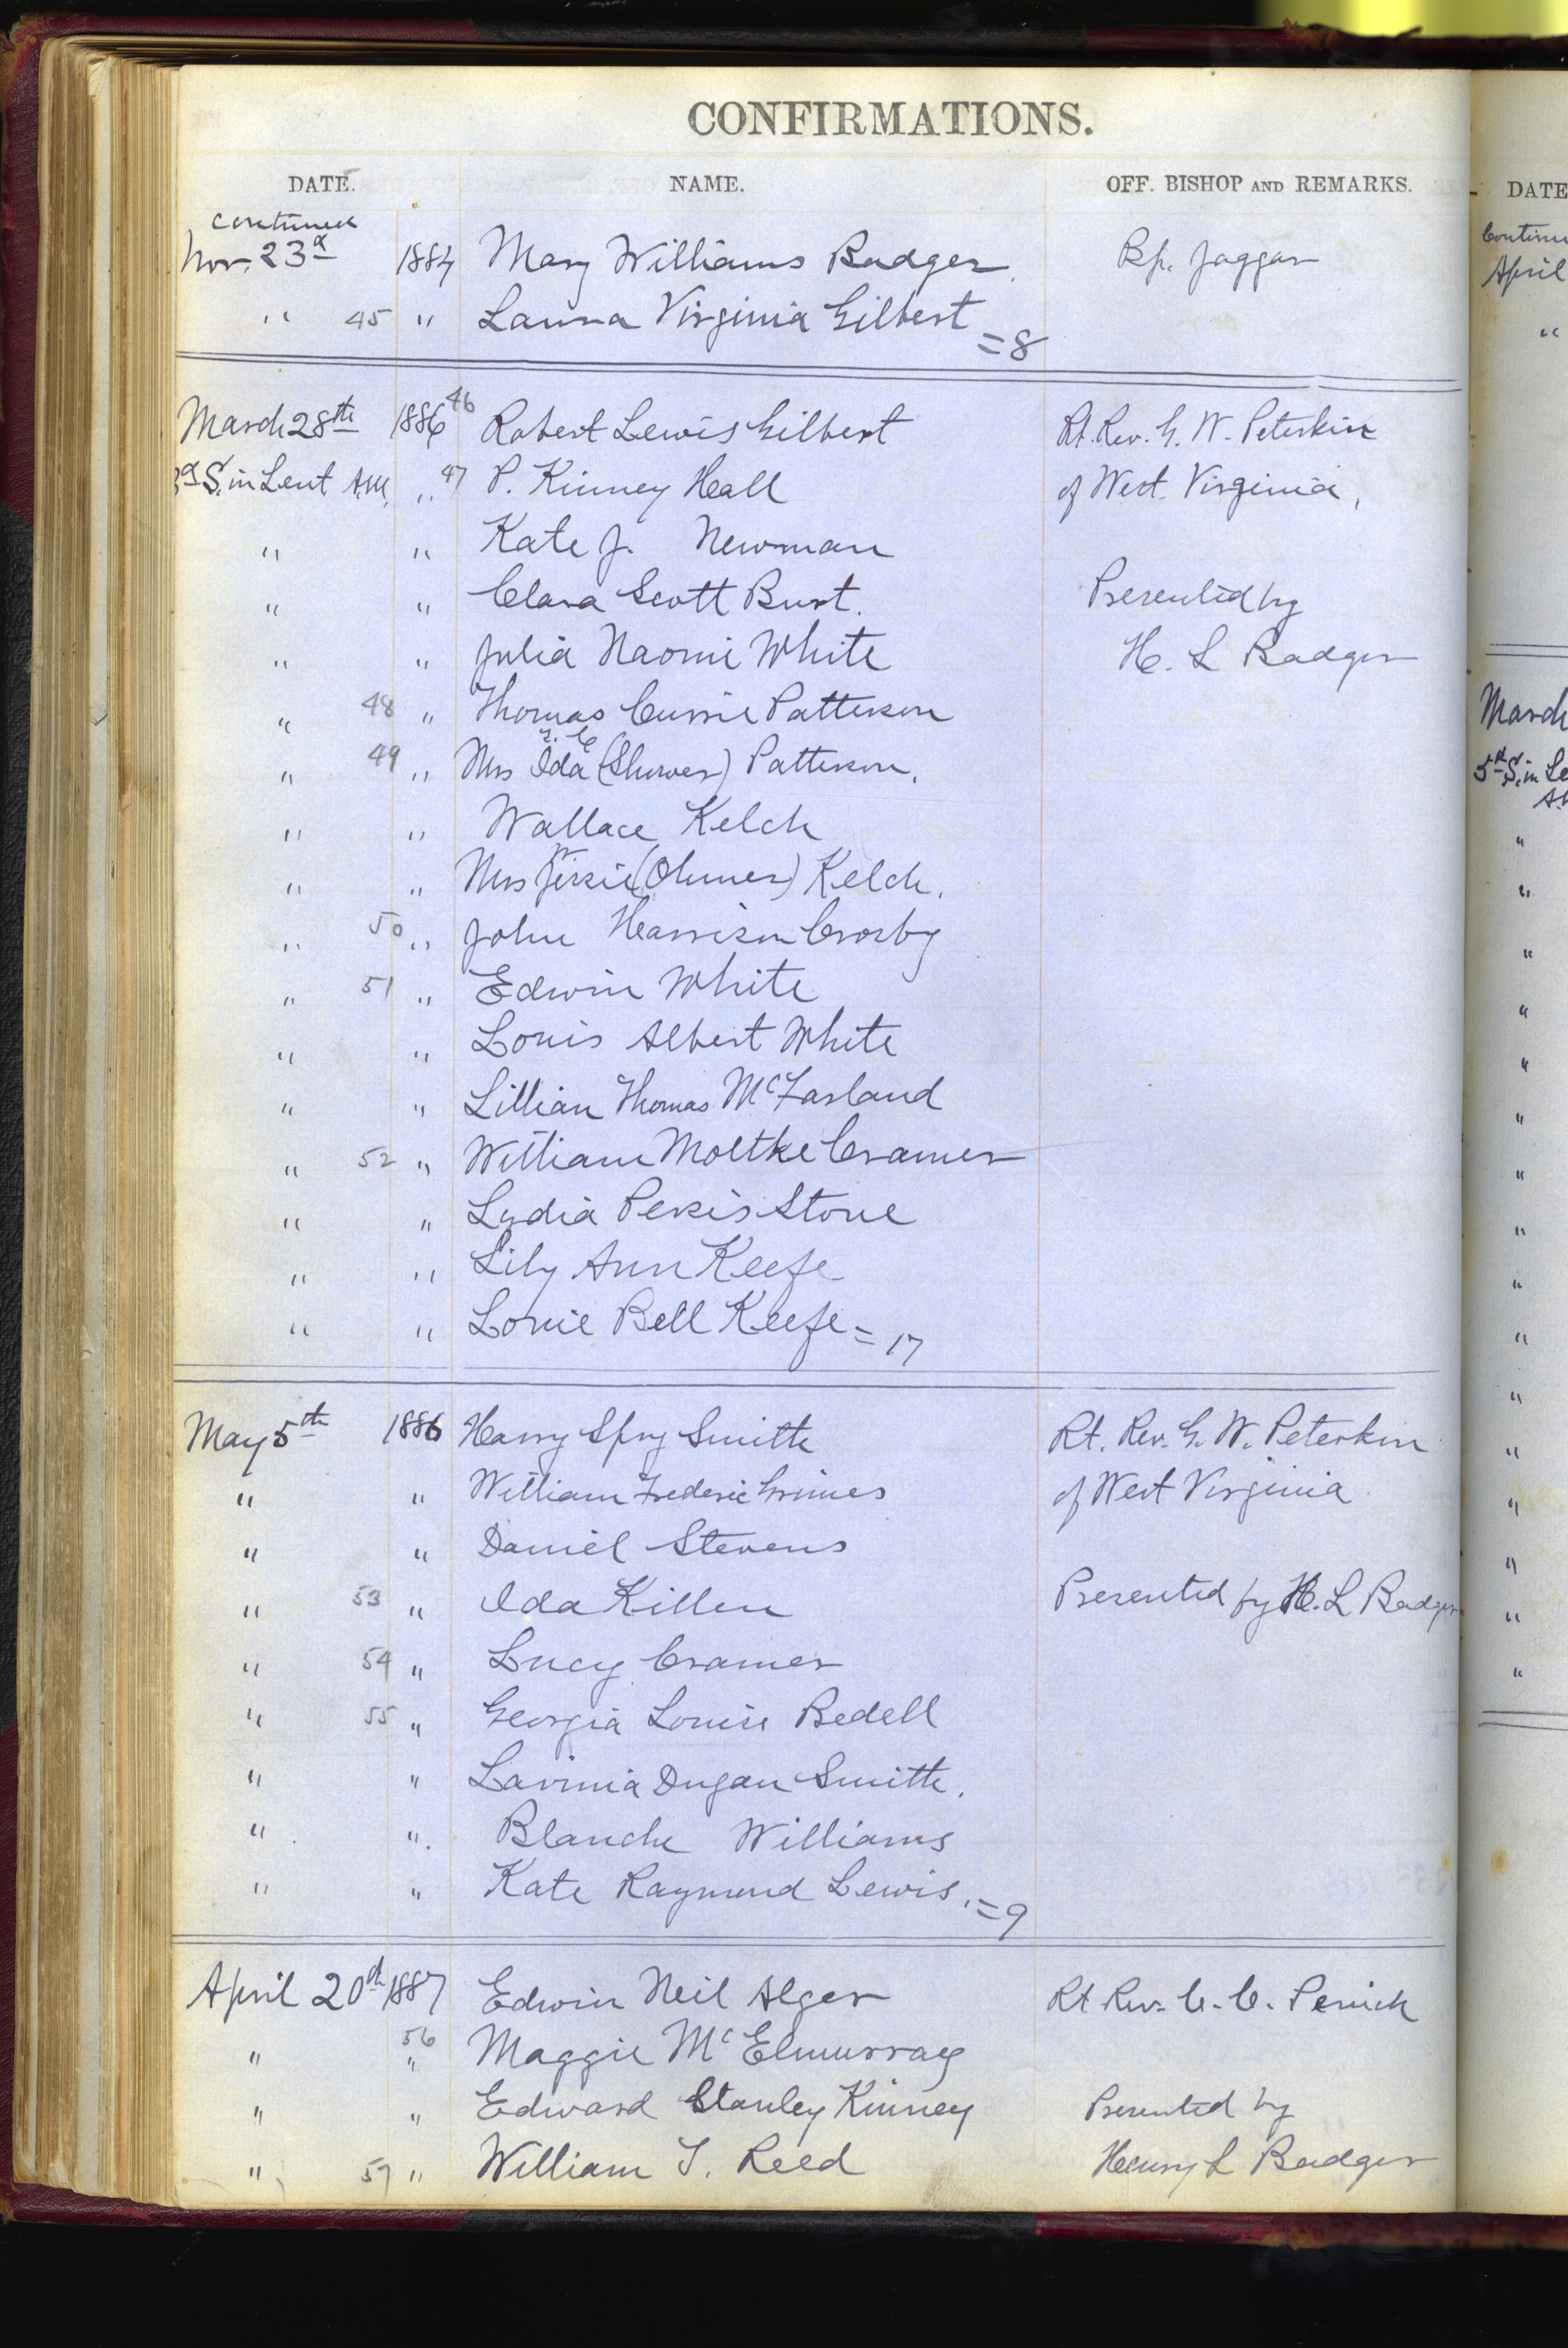 CONFIRMATIONS.
DATE. NAME. OFF. BISHOP AND REMARKS.
continued
Nov. 23d 1884 Mary Williams Badger. Bp. Jaggar
" 45 " Laura Virginia Gilbert =8
March 28th 1886 46 Robert Lewis Gilbert Rt. Rev. G. W. Peterkin
3d S. in Lent A.M. " 47 P. Kinney Hall of West. Virginia,
" " Kate J. Newman
" " Clara Scott Burt. Presented by
" " Julia Naomi White H. L Badger
" 48 " Thomas Currie Patterson
" 49 " Mrs Ida (Shower) Patterson.
" " Wallace Kelch
" " Mrs Jessie (Ohmer) Kelch.
" 50 " John Harrison Crosby
" 51 " Edwin White
" " Louis Albert White
" " Lillian Thomas McFarland
" 52 " William Moltke Cramer
" " Lydia Persis Stone
" " Lily Ann Keefe
" " Louie Bell Keefe = 17
May 5th 1886 Harry Spry Smith Rt. Rev. G. W. Peterkin
" " William Frederic Grimes of West Virginia
" " Daniel Stevens
" 53 " Ida Killen Presented by H. L Badger
" 54 " Lucy Cramer
" 55 " Georgia Louise Bedell
" " Lavinia Dugan Smith.
" " Blanche Williams
" " Kate Raymond Lewis. =9
April 20th 1887 Edwin Neil Alger Rt Rev. C. C. Penick
" 56 " Maggie McElmurray
" " Edward Stanley Kinney Presented by
" 57 " William T. Reed Henry L Badger
DATE
Continu
April
"
March
5th S. in Le